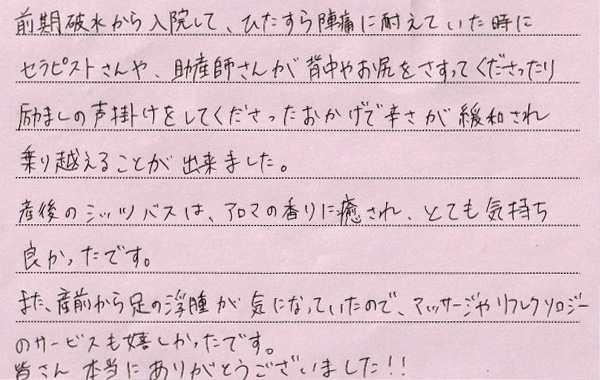 前期破水から入院して、ひたすら陣痛に耐えていた時に
セラピストさんや、助産師さんが背中やお尻をさすってくださったり
励ましの声掛けをしてくださったおかげで辛さが緩和され
乗り越えることが出来ました。
産後のシッツバスは、アロマの香りに癒され、とても気持ち
良かったです。
また、産前から足の浮腫が気になっていたので、マッサージやリフレクソロジー
のサービスも嬉しかったです。
皆さん本当にありがとうございました!!